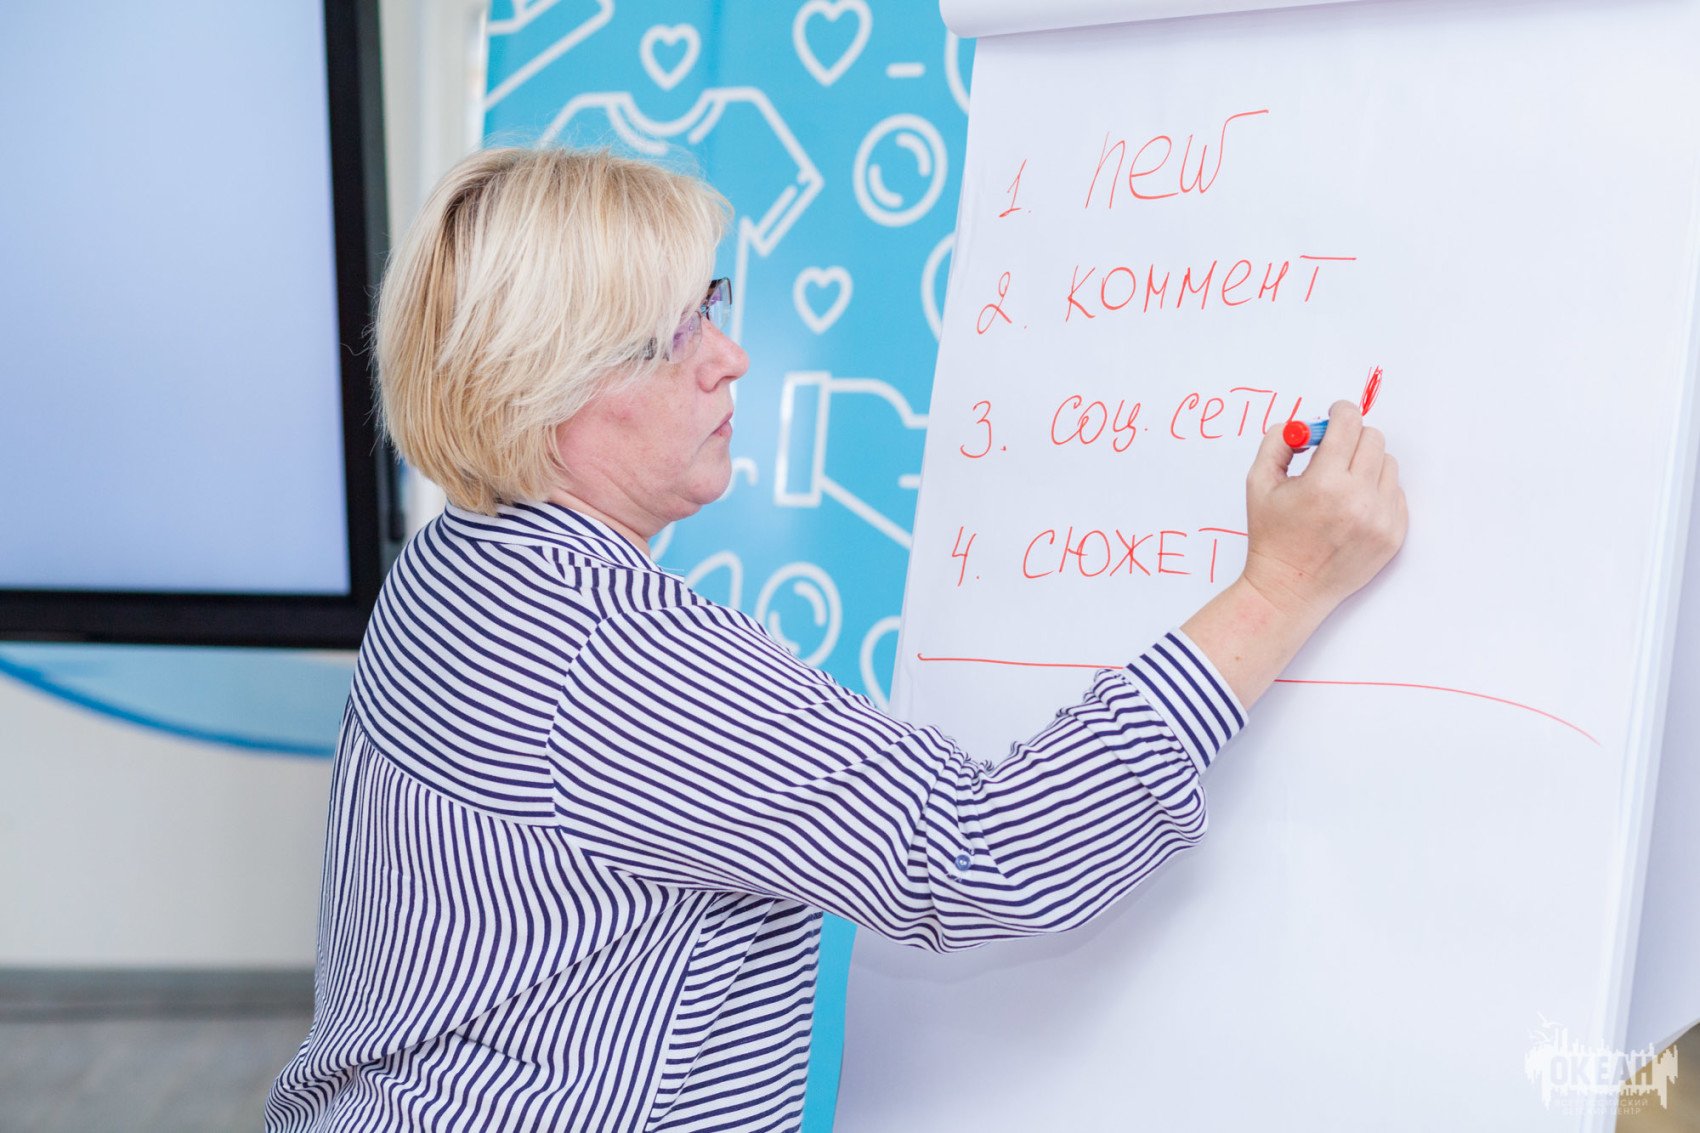 1. new
2. коммент
3. соц. сети
4. СЮЖЕТ
ОКЕАН
ВСЕРОССИЙСКИЙ
ДЕТСКИЙ ЦЕНТР